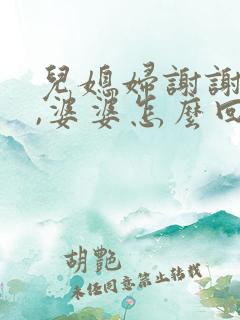 兒媳婦謝謝
,婆婆怎麼回
胡艷
未經同意禁止轉載